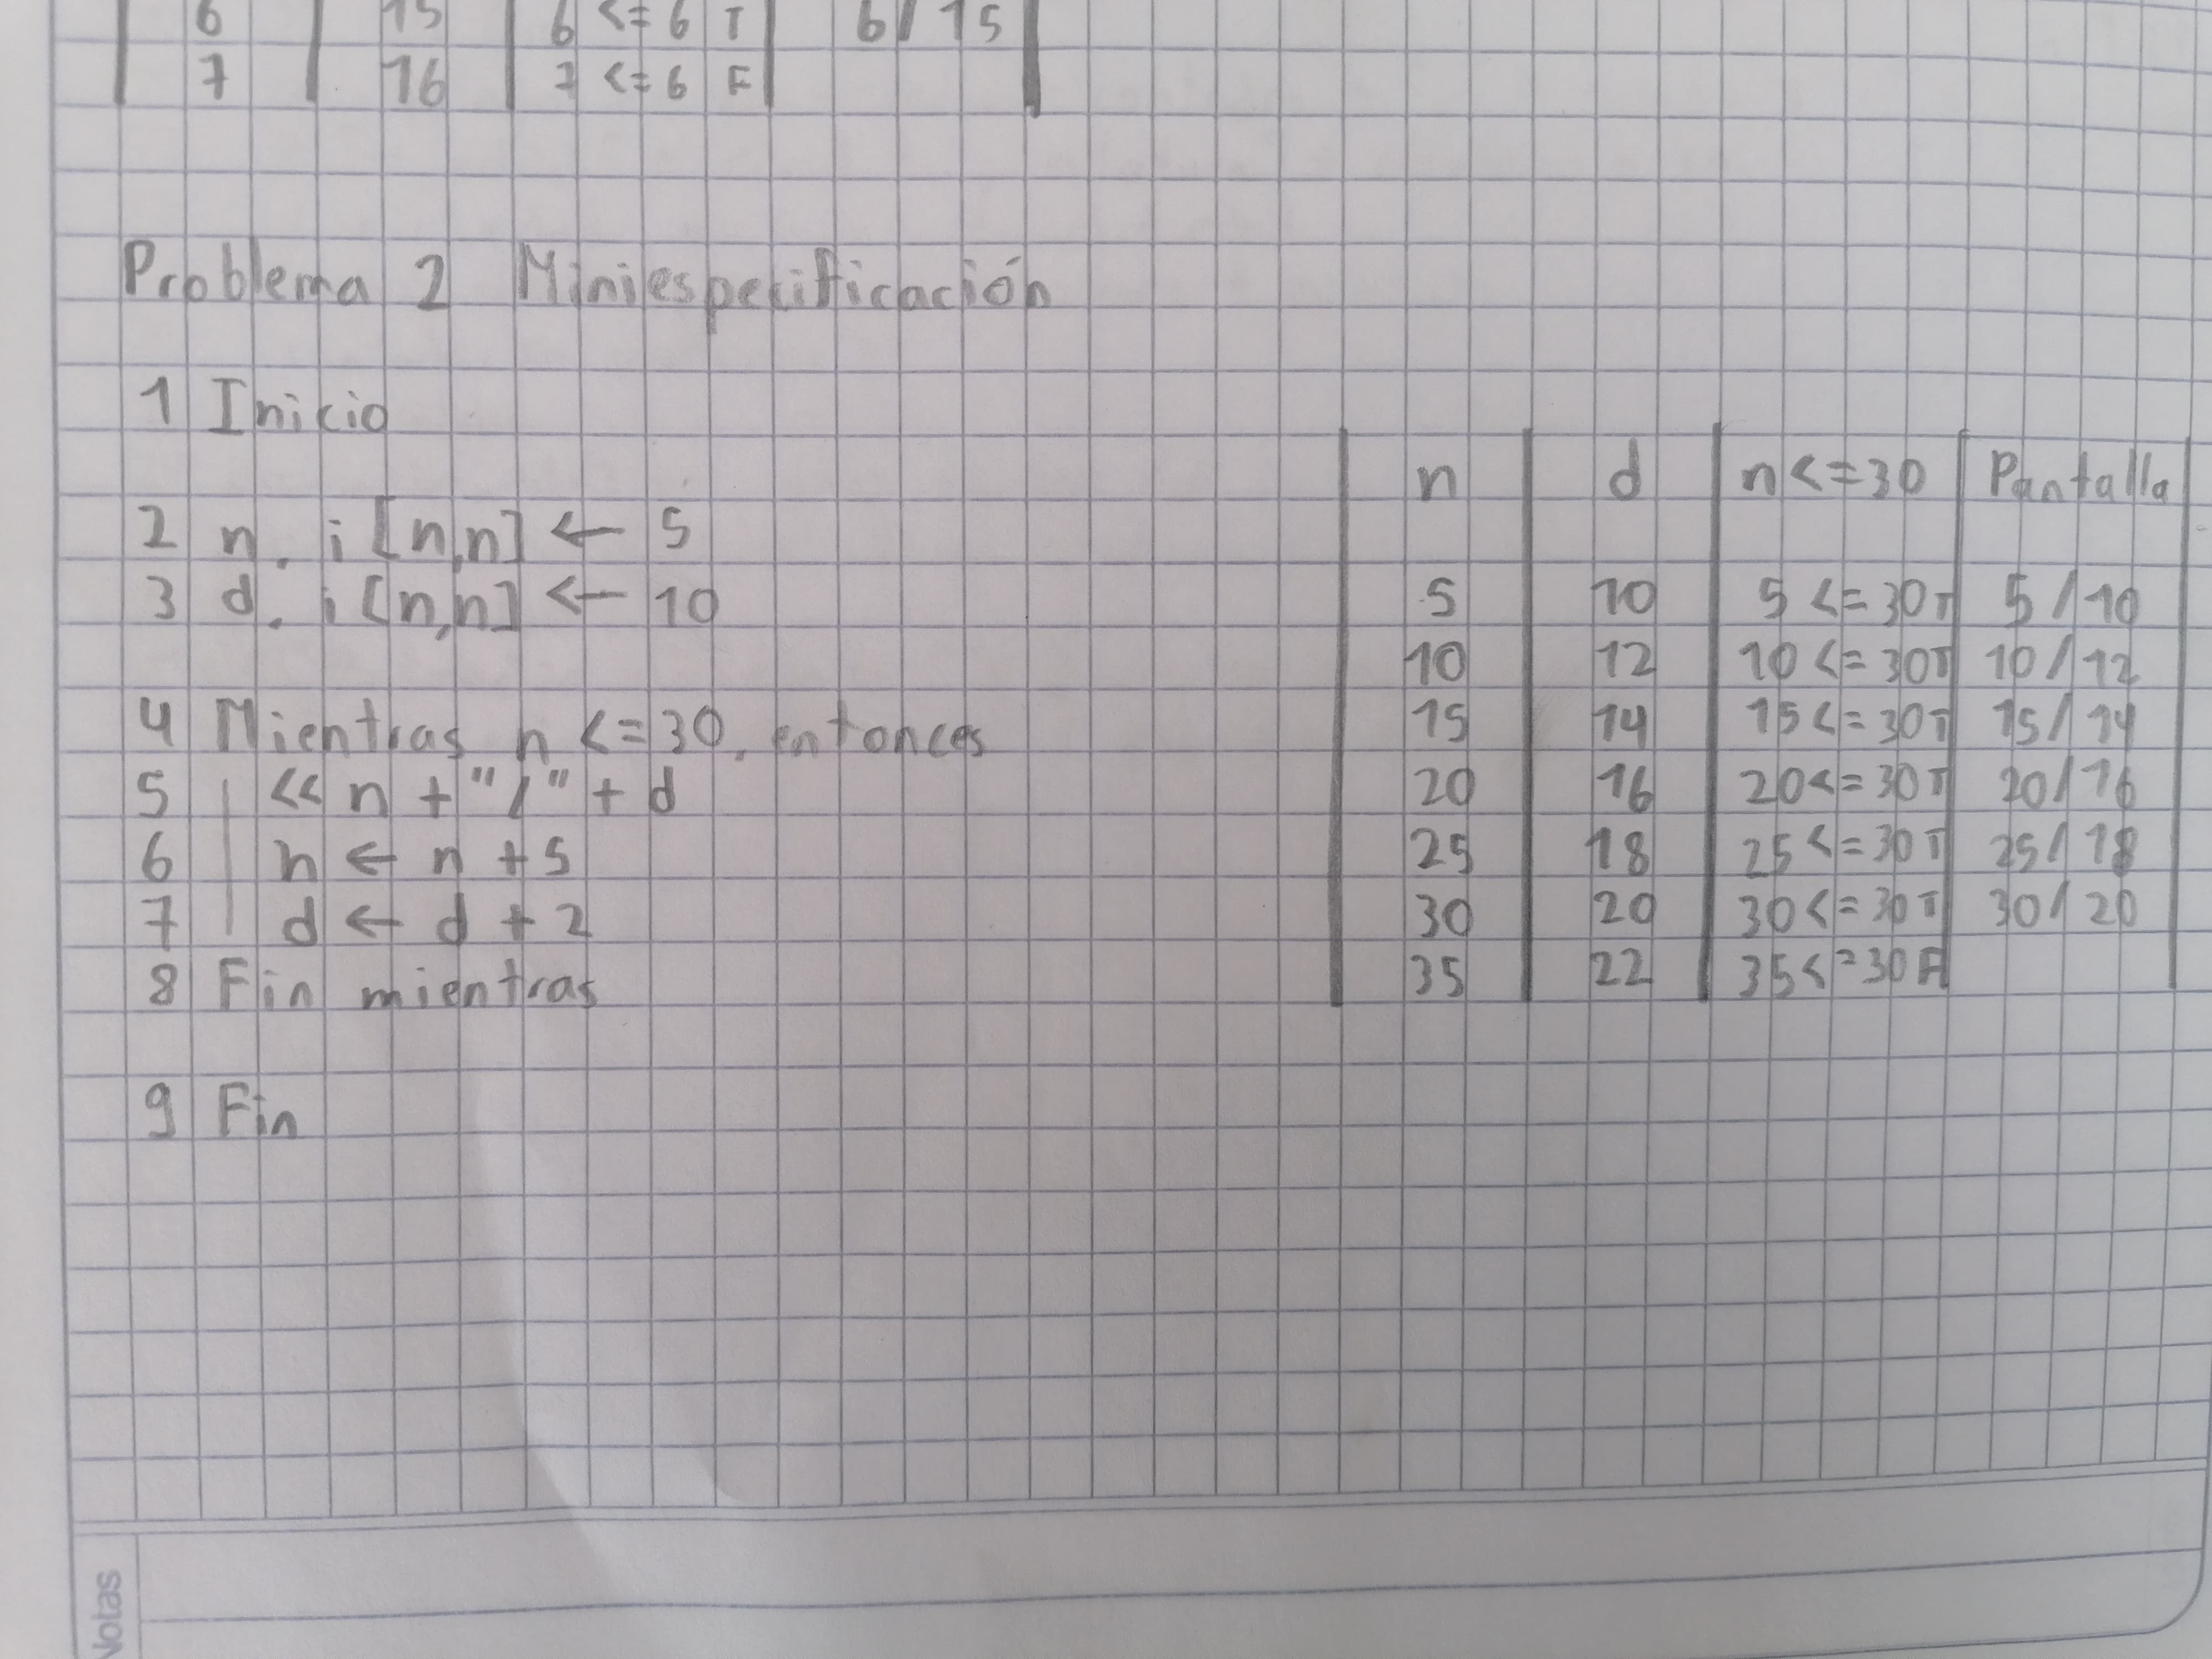 6 15 6 <= 6 T 6/15
7 16 7 <= 6 F
Problema 2 Miniespecificación
1 Inicio
2 n. i [n,n] ← 5
3 d. i [n,n] ← 10
4 Mientras n <= 30, entonces
5 << n + "/" + d
6 n ← n + 5
7 d ← d + 2
8 Fin mientras
9 Fin
n d n <= 30 Pantalla
5 10 5 <= 30 T 5/10
10 12 10 <= 30 T 10/12
15 14 15 <= 30 T 15/14
20 16 20 <= 30 T 20/16
25 18 25 <= 30 T 25/18
30 20 30 <= 30 T 30/20
35 22 35 <= 30 F
Notas